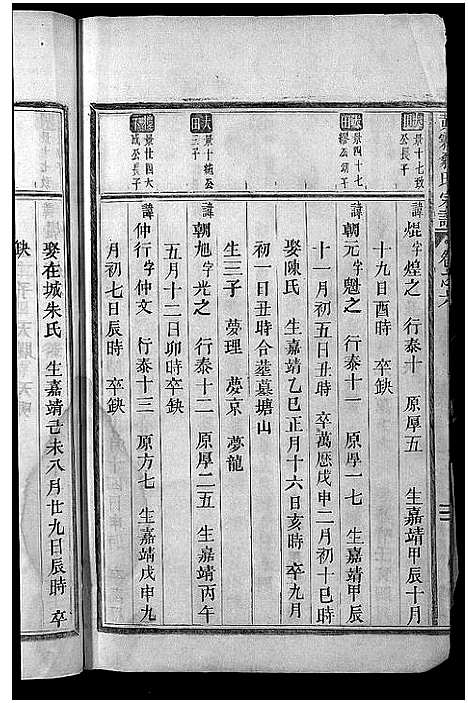 景十七致
公長子
諱焜字煌之 行泰十 原厚五 生嘉靖甲辰十月
十九日酉時 卒缺
景四十七
繆公嗣子
諱朝元字魁之 行泰十一 原學一七 生嘉靖甲辰
十一月初五日丑時 卒萬厯戊申二月初十巳時
娶陳氏 生嘉靖乙巳正月十六日亥時 卒九月
初一日丑時合塟墓塘山
生三子 夢理 夢京 夢龍
景十純公
三子
諱朝旭字光之 行泰十二 原厚二五 生嘉靖丙午
五月十二日卯時 卒缺
景廿四大
成公長子
諱仲行字仲文 行泰十三 原方七 生嘉靖戊申九
月初七日辰時 卒缺
娶在城朱氏 生嘉靖己未八月廿九日辰時 卒
缺